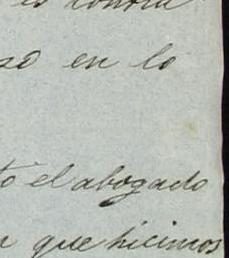 es contra
en lo
el abogado
que hicimos